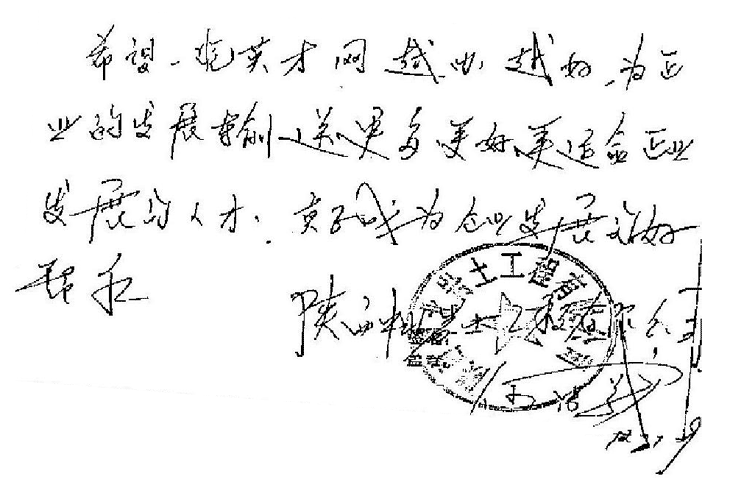 希望一览英才网越办越好,为企
业的发展输送更多更好更适合企业
发展的人才,真正成为企业发展的好
帮手
陕西 岩土工程有限公司
岩土工程有